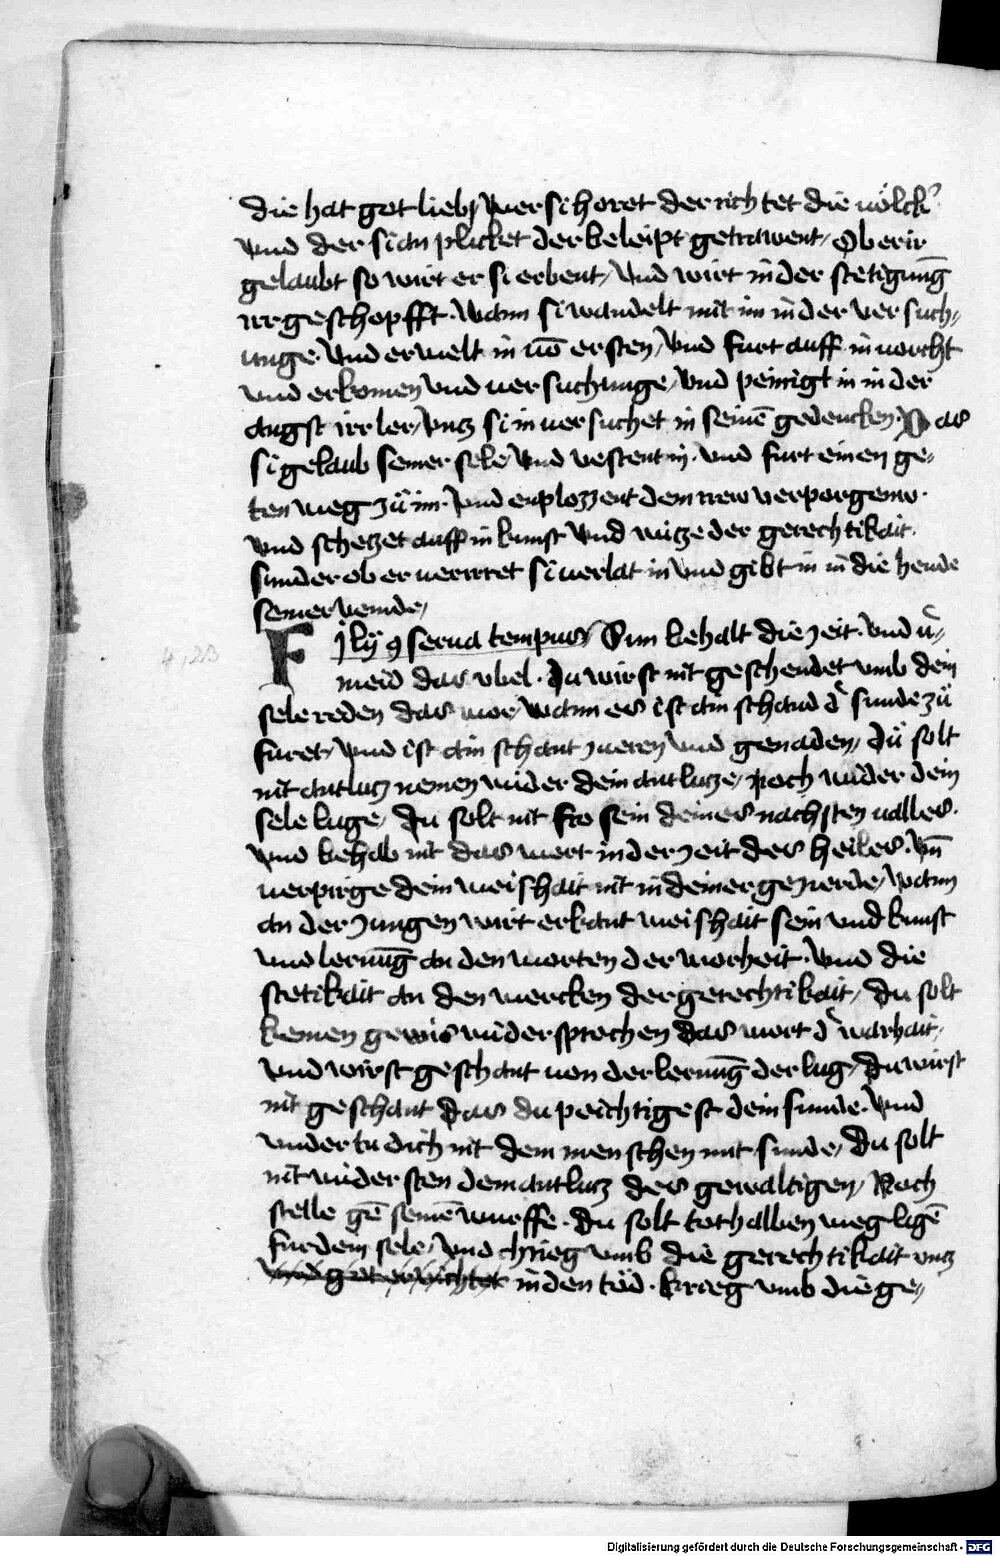 die hat got lieb / wer si horet der richtet die uölck᷑
vnd der si an plicket der beleipt getrawent / Ob er ir
gelaubt so wirt er si erbent / Vnd wirt in der stetigunḡ
irr geschopfft . Wann si wandelt mit im in der versuch⸗
unge . Vnd erwelt in uō ersten / Vnd furt auff in uorcht
vnd erkomen vnd uersuchunge / Vnd peinigt in in der
angst irr ler / vntz si in uersuchet in seinē gedencken . Das
si gelaub seiner sele Vnd vestent in . Vnd furt einen ge⸗
ten weg zů im . Vnd enplozzent dem rrew verporgens .
Vnd schetzet auff in kunst Vnd witze der gerechtikait .
Sunder ob er uerirret si uerlat in Vnd gibt in in die hende
seiner veinde /
Fjlij 9serua tempus / Sun behalt die zeit . Vnd u᷑⸗
meid das vbel . Du wirst nit geschendet vmb dein
sele reden das wor / Wann es ist ain schand d᷑ sunde zů
füret / Vnd ist ain schant zu eren Vnd genaden / dů solt
nit antlutz nemen wider dein antlutze / Noch wider dein
sele luge / Du solt nit fro sein deines nachsten ualles .
Vnd behab nit das wort in der zeit des heiles . Vn̄
uerpirge dein weishait nit in deiner gezierde / Wann
an der zungen wirt erkant weishait sein vnd kunst
vnd lernūg an den worten der worheit . Vnd die
stetikait an den wercken der gerechtikait / Du solt
keinen gewis widersprechen das wort d᷑ warhait /
Vnd wirst geschant uon der lernūg der lug / Du wirst
nit geschant das du peichtigest dein sunde . Vnd
vndertu dich nit dem menschen mit sunde / Du solt
nit widersten dem antlutz des gewaltigen / Noch
stelle gē seinē wurffe . Du solt tothalben weg ligē
fur dein sele / Vnd chrieg vmb die gerechtikait vntz
in den tód . krieg vmb die ge⸗
4, 23
Digitalisierung gefördert durch die Deutsche Forschungsgemeinschaft - DFG